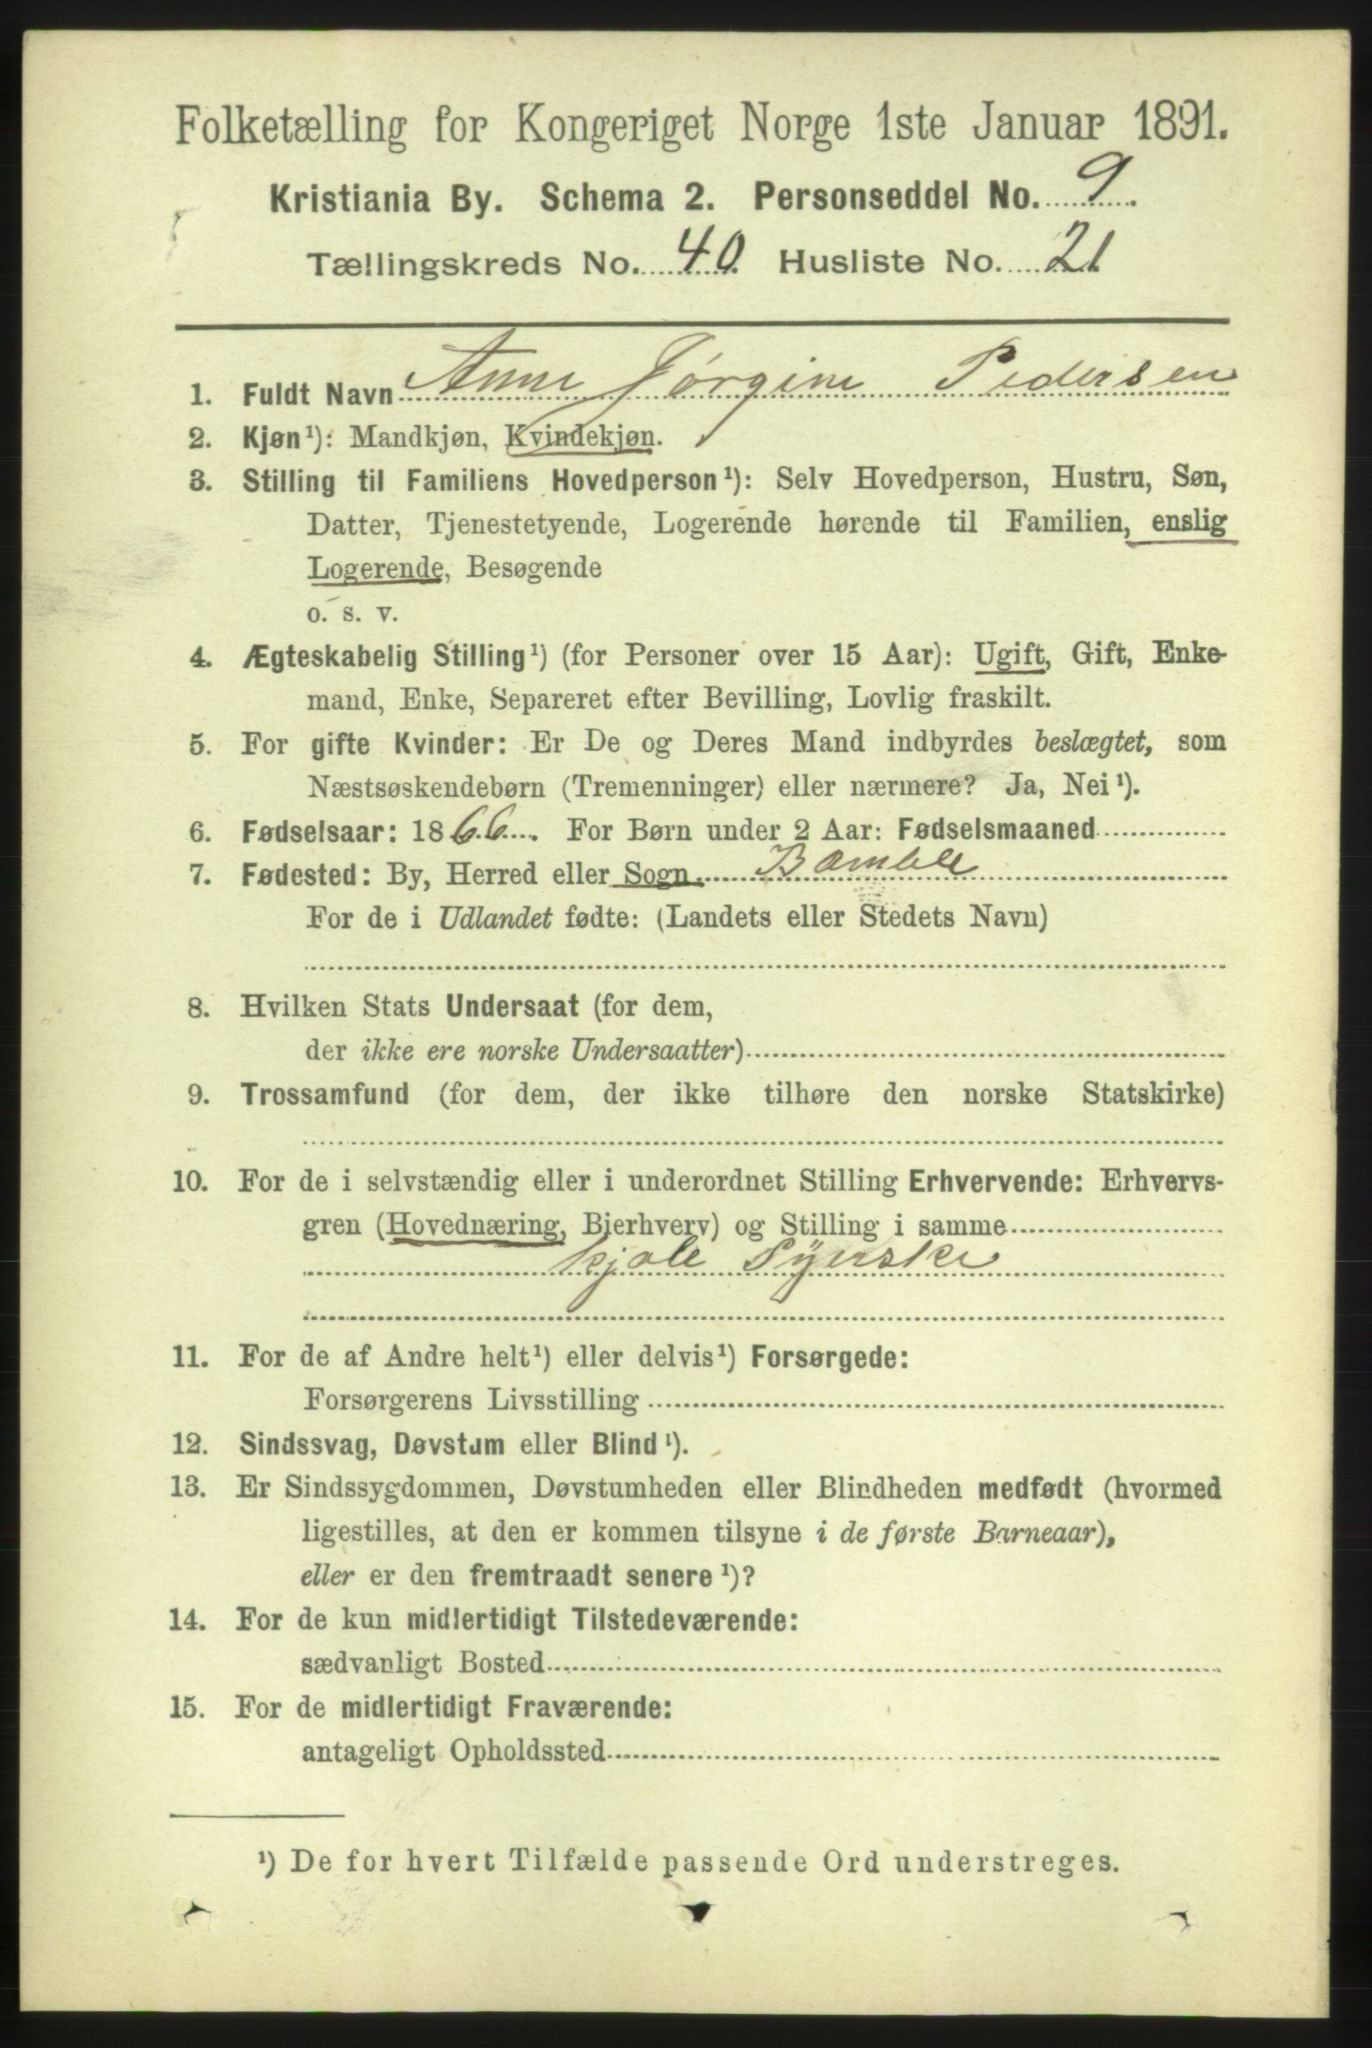 Folketælling for Kongeriget Norge 1ste Januar 1891.
Kristiania By. Schema 2. Personseddel No. 9
Tællingskreds No. 40 Husliste No. 21
1. Fuldt Navn Anne Jørgine Pedersen
2. Kjøn¹): Mandkjøn, Kvindekjøn.
3. Stilling til Familiens Hovedperson¹): Selv Hovedperson, Hustru, Søn,
Datter, Tjenestetyende, Logerende hørende til Familien, enslig
Logerende, Besøgende
o. s. v.
4. Ægteskabelig Stilling¹) (for Personer over 15 Aar): Ugift, Gift, Enke-
mand, Enke, Separeret efter Bevilling, Lovlig fraskilt.
5. For gifte Kvinder: Er De og Deres Mand indbyrdes beslægtet, som
Næstsøskendebørn (Tremenninger) eller nærmere? Ja, Nei¹).
6. Fødselsaar: 1866. For Børn under 2 Aar: Fødselsmaaned
7. Fødested: By, Herred eller Sogn Bamble
For de i Udlandet fødte: (Landets eller Stedets Navn)
8. Hvilken Stats Undersaat (for dem,
der ikke ere norske Undersaatter)
9. Trossamfund (for dem, der ikke tilhøre den norske Statskirke)
10. For de i selvstændig eller i underordnet Stilling Erhvervende: Erhvervs-
gren (Hovednæring, Bierhverv) og Stilling i samme
Kjole Syerske
11. For de af Andre helt¹) eller delvis¹) Forsørgede:
Forsørgerens Livsstilling
12. Sindssvag, Døvstum eller Blind¹).
13. Er Sindssygdommen, Døvstumheden eller Blindheden medfødt (hvormed
ligestilles, at den er kommen tilsyne i de første Barneaar),
eller er den fremtraadt senere¹)?
14. For de kun midlertidigt Tilstedeværende:
sædvanligt Bosted
15. For de midlertidigt Fraværende:
antageligt Opholdssted
¹) De for hvert Tilfælde passende Ord understreges.